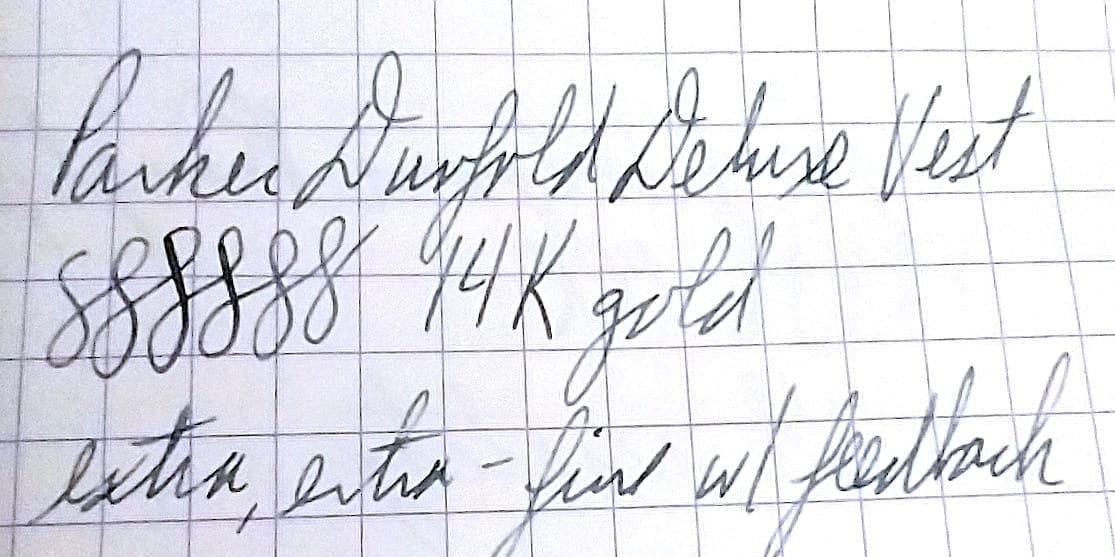 Parker Duofold Deluxe Vest
888888 14K gold
extra, extra-fine w/ feedback